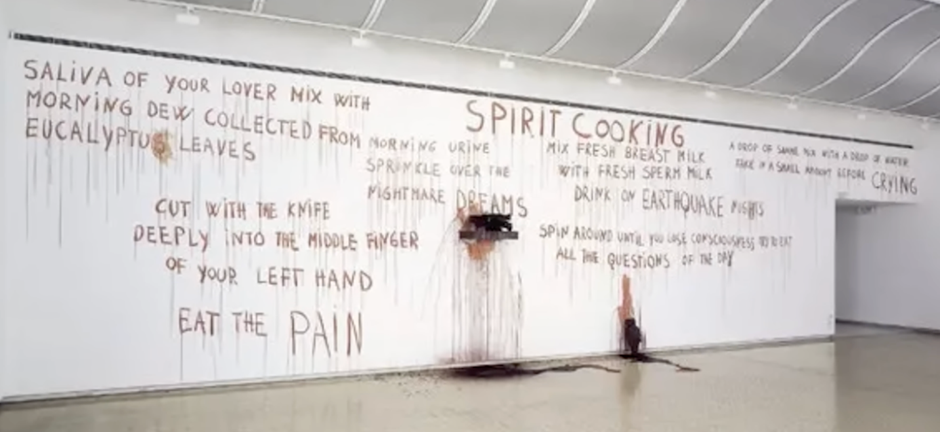 SALIVA OF YOUR LOVER MIX WITH
MORNING DEW COLLECTED FROM
EUCALYPTUS LEAVES
CUT WITH THE KNIFE
DEEPLY INTO THE MIDDLE FINGER
OF YOUR LEFT HAND
EAT THE PAIN
MORNING URINE
SPRINKLE OVER THE
NIGHTMARE DREAMS
SPIRIT COOKING
MIX FRESH BREAST MILK
WITH FRESH SPERM MILK
DRINK ON EARTHQUAKE NIGHTS
SPIN AROUND UNTIL YOU LOSE CONSCIOUSNESS TRY TO EAT
ALL THE QUESTIONS OF THE DAY
A DROP OF MIX WITH A DROP OF WATER
TAKE IN A SMALL AMOUNT BEFORE CRYING